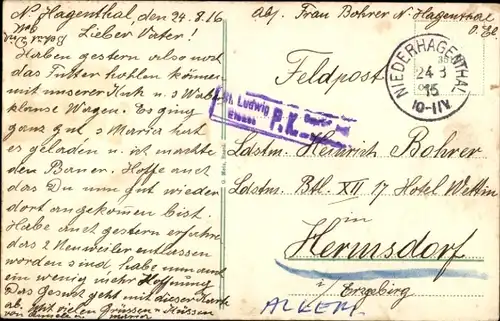 N. Hagenthal, den 24. 8. 16
Lieber Vater!
Haben gestern also noch
das Futter hohlen können
mit unserer Kuh u. s Waber
klause Wagen. Es ging
ganz gut s Maria hat
es geladen u. ich machte
den Bauer. Hoffe auch
das Du nun gut wieder
dort angekommen bist.
Habe auch gestern erfahren
das 2 Neuweiler entlassen
worden sind, habe nun auch
ein wenig mehr Hoffnung
Das Gesuch geht mit dieser Karte
ab. Mit vielen Grüssen u. Küssen
Abs. Frau Bohrer N. Hagenthal
O. Els.
Feldpost
NIEDERHAGENTHAL
24 8
10-11V.
Ludwig
Elsass
P.K.
Ldstm. Heinrich Bohrer
Ldstm. Btl. XII 17 Hotel Wettin
in
Hermsdorf
i/ Erzgebirg